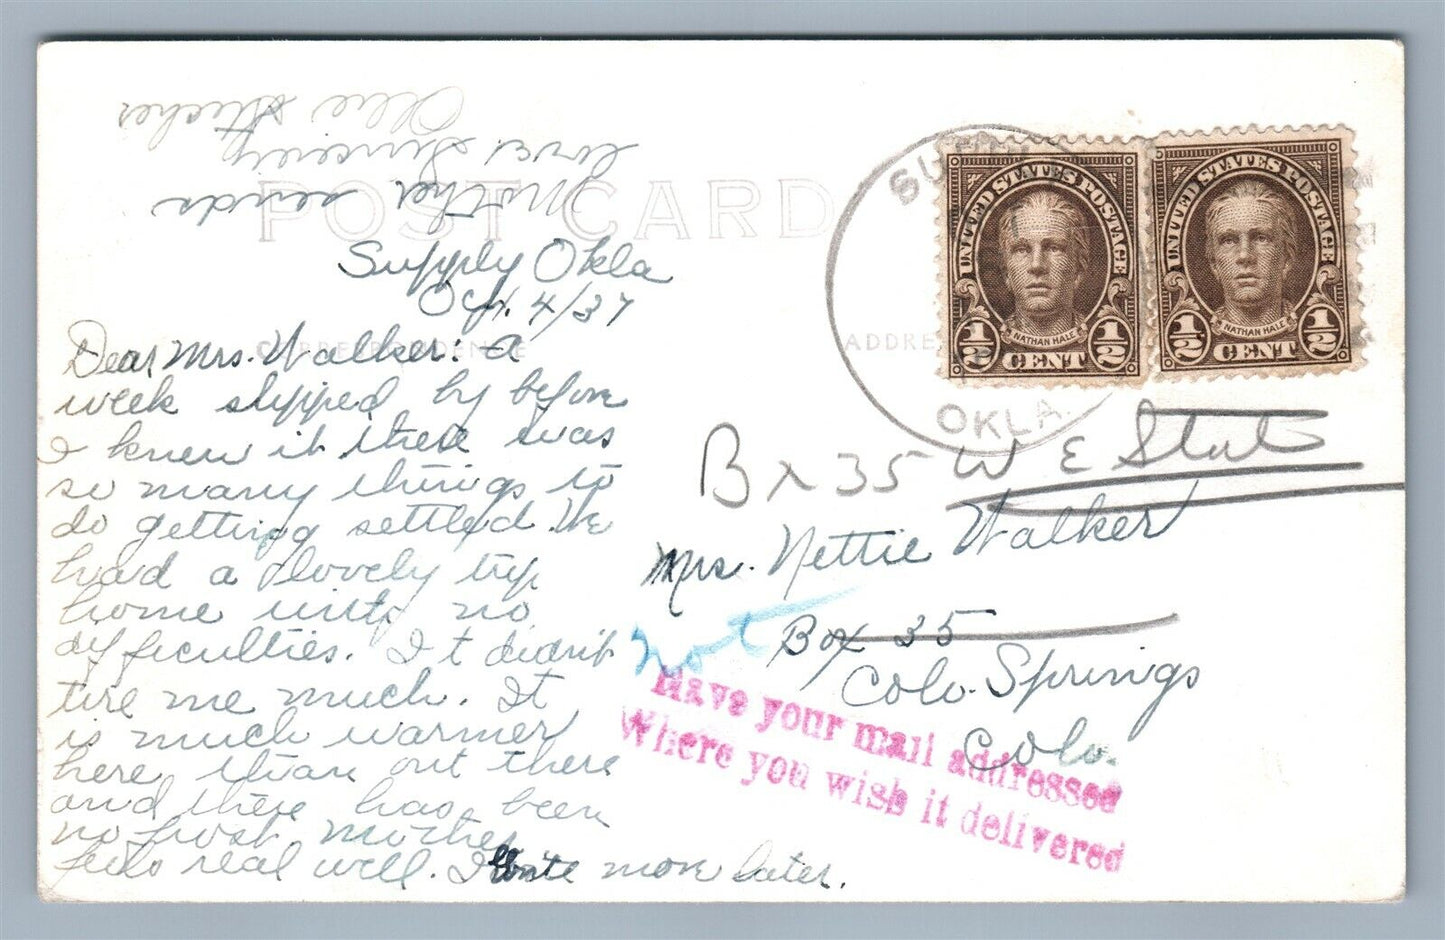 POST CARD
Supply Okla
Oct. 4/37
CORRESPONDENCE
Dear Mrs. Walker: - A
week slipped by before
I knew it there was
so many things to
do getting settled. We
had a lovely trip
home with no
difficulties. It didn't
tire me much. It
is much warmer
here than out there
and there has been
no frost. Mother
feels real well. I write more later.
Mother sends
love. Sincerely
Ollie
SUPPLY
OKLA.
UNITED STATES POSTAGE
NATHAN HALE
1/2 CENT 1/2
UNITED STATES POSTAGE
NATHAN HALE
1/2 CENT 1/2
ADDRE
Bx 35 W E Stat
Mrs. Nettie Walker
Box 35
Colo. Springs
Colo.
not
Have your mail addressed
Where you wish it delivered